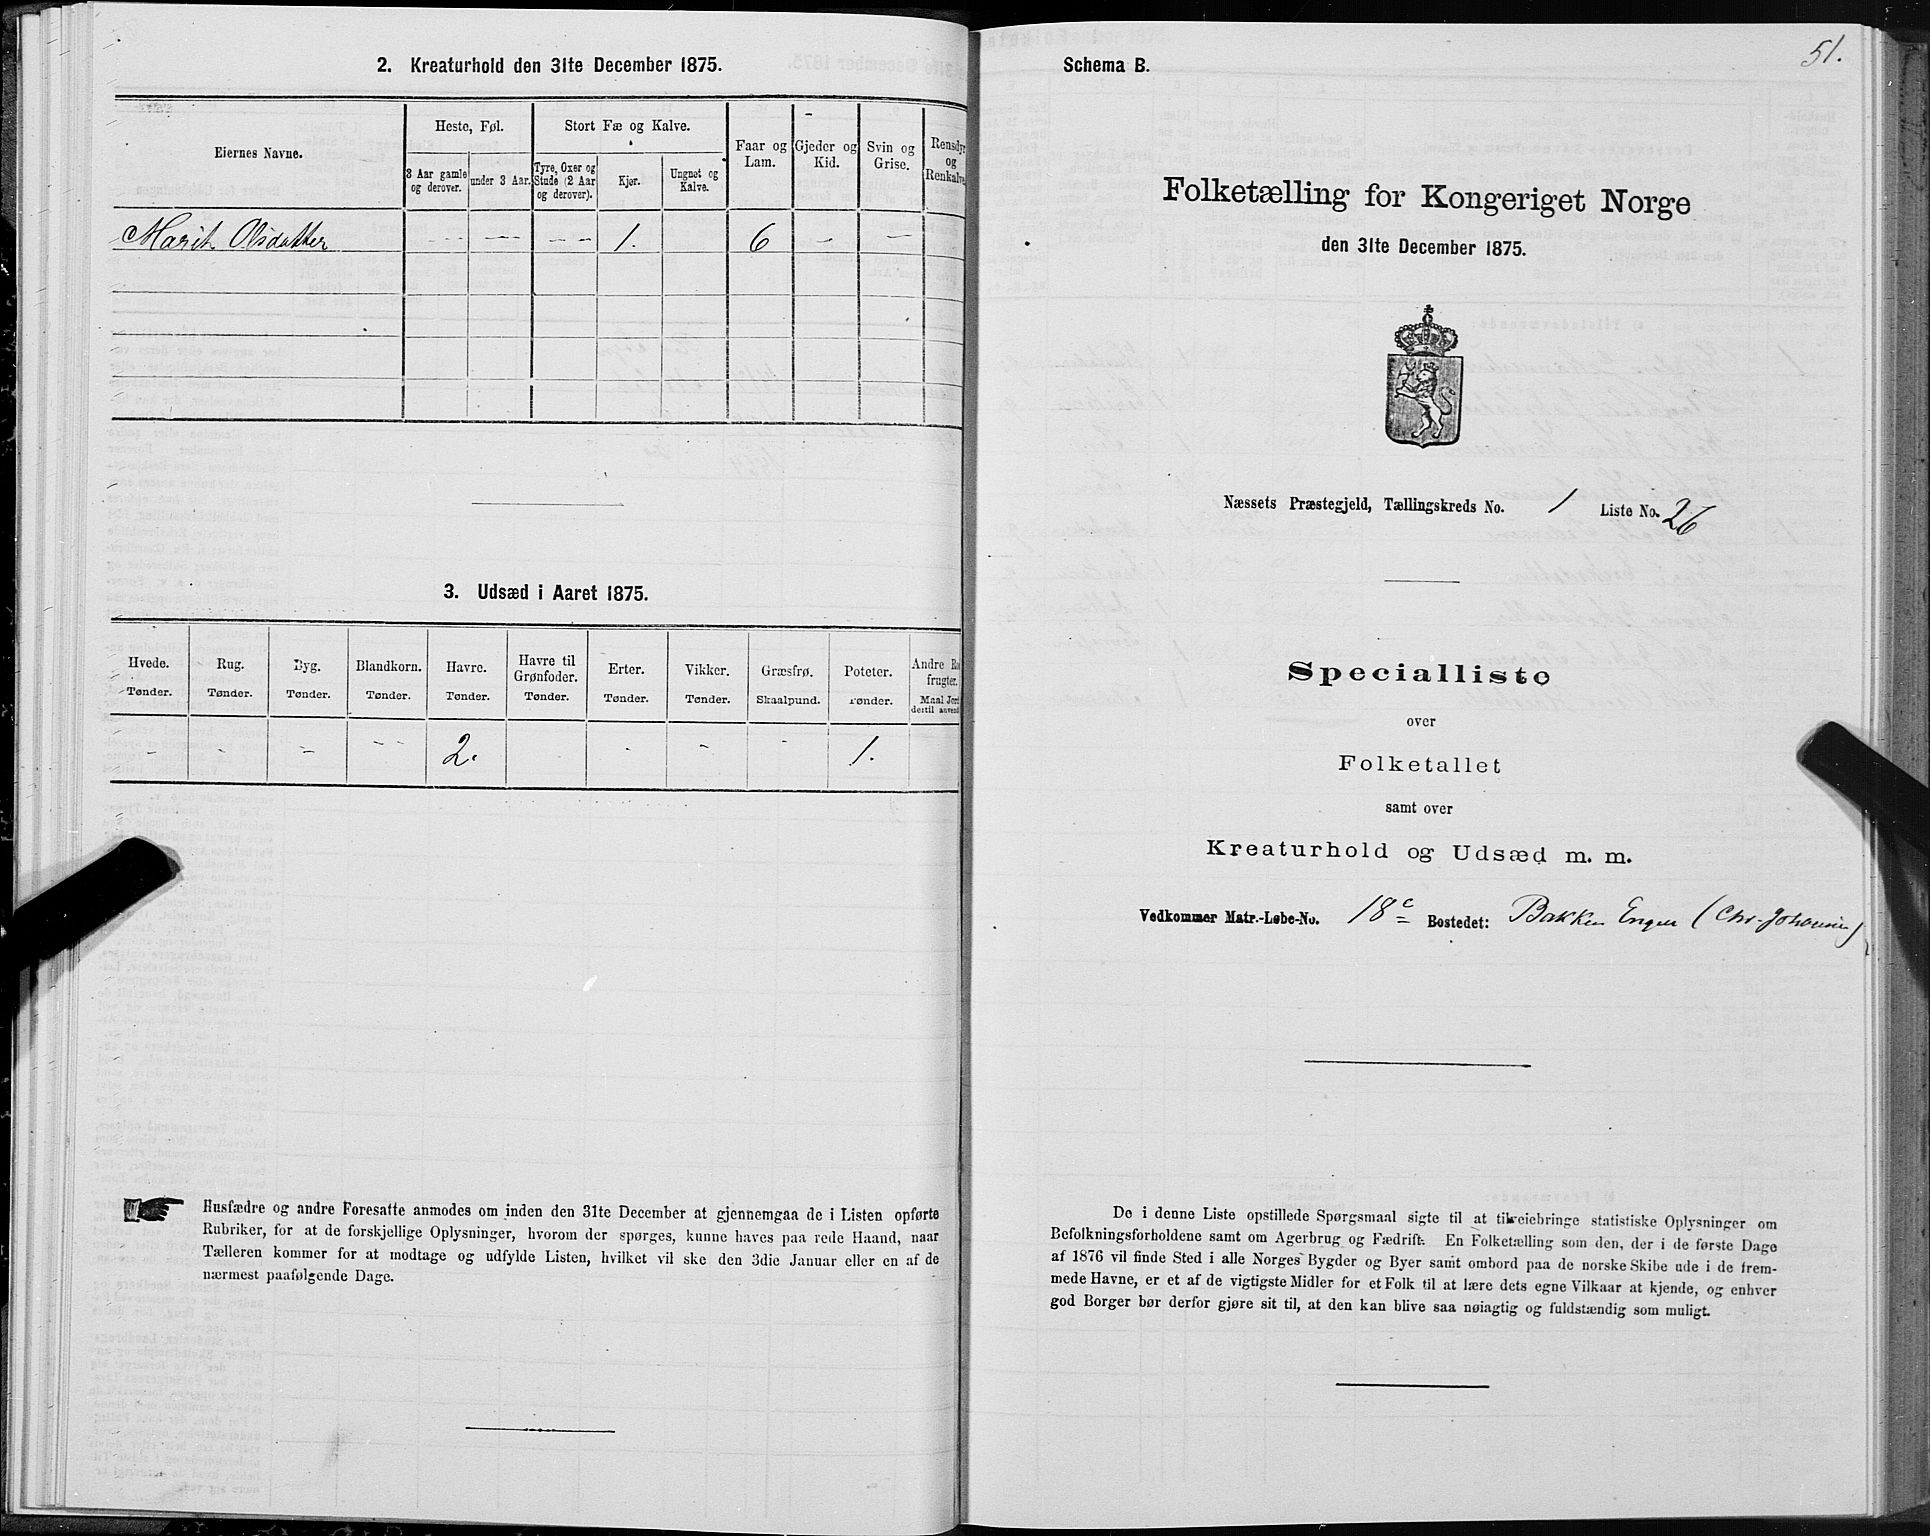 2. Kreaturhold den 31te December 1875.
Eiernes Navne.
Heste, Føl.
Stort Fæ og Kalve.
Faar og Lam.
Gjeder og Kid.
Svin og Grise.
Rensdyr og Renkalve.
3 Aar gamle og derover.
under 3 Aar.
Tyre, Oxer og Stude (2 Aar og derover).
Kjør.
Ungnøt og Kalve.
Marit Olsdatter - - - - - - - 1. 6 - -
3. Udsæd i Aaret 1875.
Hvede. Rug. Byg. Blandkorn. Havre. Havre til Grønfoder. Erter. Vikker. Græsfrø. Poteter. Andre Ro frugter.
Tønder. Tønder. Tønder. Tønder. Tønder. Tønder. Tønder. Tønder. Skaalpund. Tønder. Maal Jord dertil anvend
- - - - - 2. - - - 1.
Husfædre og andre Foresatte anmodes om inden den 31te December at gjennemgaa de i Listen opførte
Rubriker, for at de forskjellige Oplysninger, hvorom der spørges, kunne haves paa rede Haand, naar
Tælleren kommer for at modtage og udfylde Listen, hvilket vil ske den 3die Januar eller en af de
nærmest paafølgende Dage.
51.
Schema B.
Folketælling for Kongeriget Norge
den 31te December 1875.
Næssets Præstegjeld, Tællingskreds No. 1 Liste No. 26
Specialliste
over
Folketallet
samt over
Kreaturhold og Udsæd m. m.
Vedkommer Matr.-Løbe-No. 18c Bostedet: Bakken Engen (Chr. Johansen)
De i denne Liste opstillede Spørgsmaal sigte til at tilveiebringe statistiske Oplysninger om
Befolkningsforholdene samt om Agerbrug og Fædrift. En Folketælling som den, der i de første Dage
af 1876 vil finde Sted i alle Norges Bygder og Byer samt ombord paa de norske Skibe ude i de frem-
mede Havne, er et af de vigtigste Midler for et Folk til at lære dets egne Vilkaar at kjende, og enhver
god Borger bør derfor gjøre sit til, at den kan blive saa nøiagtig og fuldstændig som muligt.